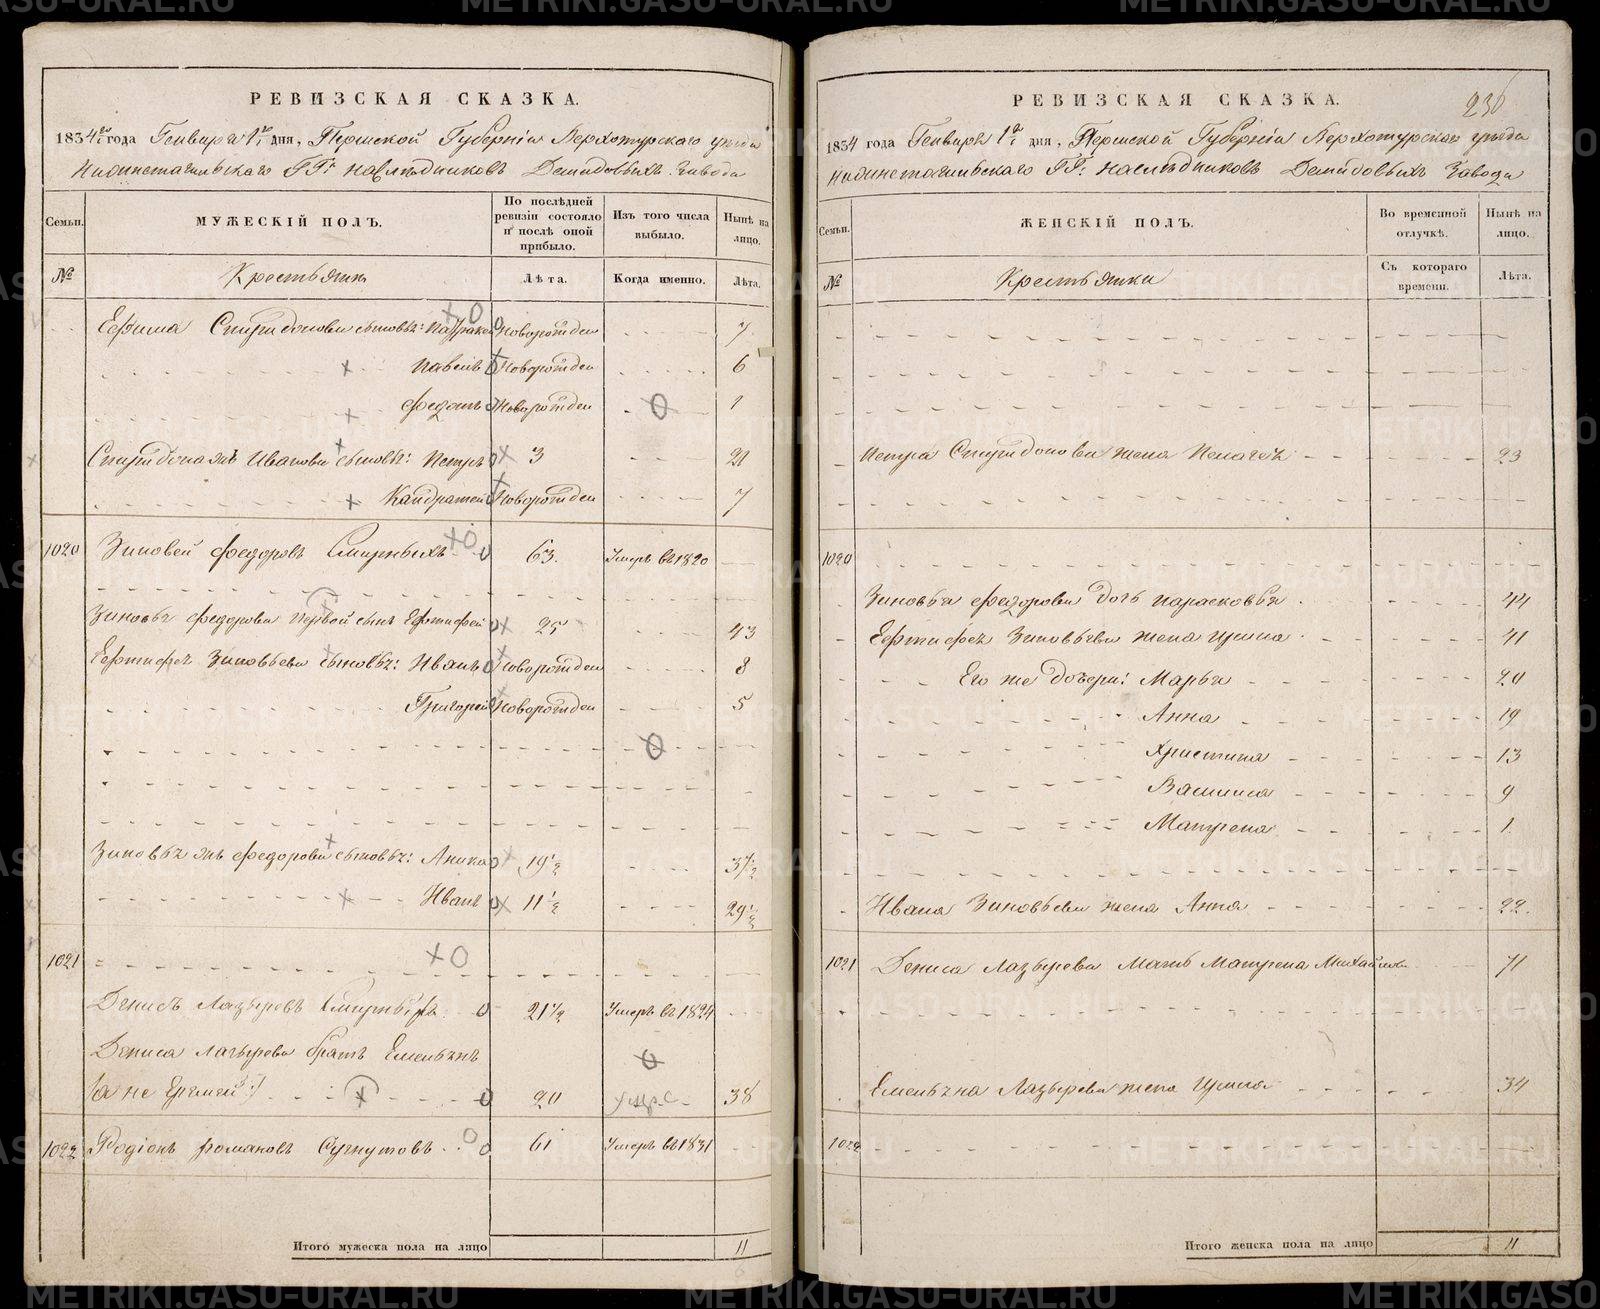 РЕВИЗСКАЯ СКАЗКА.
1834 года Генваря 1 дня, Пермской Губерніи Верхотурскаго уѣзда
Нижнетагильскаго ГГ: наслѣдниковъ Демидовыхъ Завода
Семьи. МУЖЕСКІЙ ПОЛЪ. По послѣдней ревизіи состояло и послѣ оной прибыло. Изъ того числа выбыло. Нынѣ на лицо.
№ Крестьянъ Лѣта. Когда именно. Лѣта.
Ефима Спиридонова сыновья: новорожден 7
Павелъ новорожден 6
Федотъ новорожден 1
Ивановы сыновья: Петръ 3 21
Кандратей новорожден 7
1020 Зиновей Федоровъ Смирныхъ 63. Умеръ въ 1820
Зиновья Федорова первой сынъ 25 43
Зиновьева сыновья: Иванъ новорожден 8
Григорей новорожден 5
Зиновья жъ Федорова сыновья: Аника 19½ 37½
Иванъ 11½ 29½
1021
Денисъ Лазыревъ 21½ Умеръ въ 1824
Дениса Лазырева братъ Емельянъ
/а не Еремей/ 20 38
1022 Родіонъ Романовъ Сугнутовъ 61 Умеръ въ 1831
Итого мужеска пола на лицо 11
236
РЕВИЗСКАЯ СКАЗКА.
1834 года Генваря 1 дня, Пермской Губерніи Верхотурскаго уѣзда
Нижнетагильскаго ГГ: наслѣдниковъ Демидовыхъ Завода
Семьи. ЖЕНСКІЙ ПОЛЪ. Во временной отлучкѣ. Нынѣ на лицо.
№ Крестьянки Съ котораго времени. Лѣта.
Петра Спиридонова жена Пелагея 23
1020
Зиновья Федорова дочь Парасковья 44
Зиновьева жена Ирина 41
Его же дочери: Марья 20
Анна 19
Христина 13
Васшиса 9
Матрена 1
Ивана Зиновьева жена Анна 22.
1021 Дениса Лазырева мать Матрена Михайлова 71
Емельяна Лазырева жена Ирина 34
1022
Итого женска пола на лицо 11
METRIKI.GASO-URAL.RU